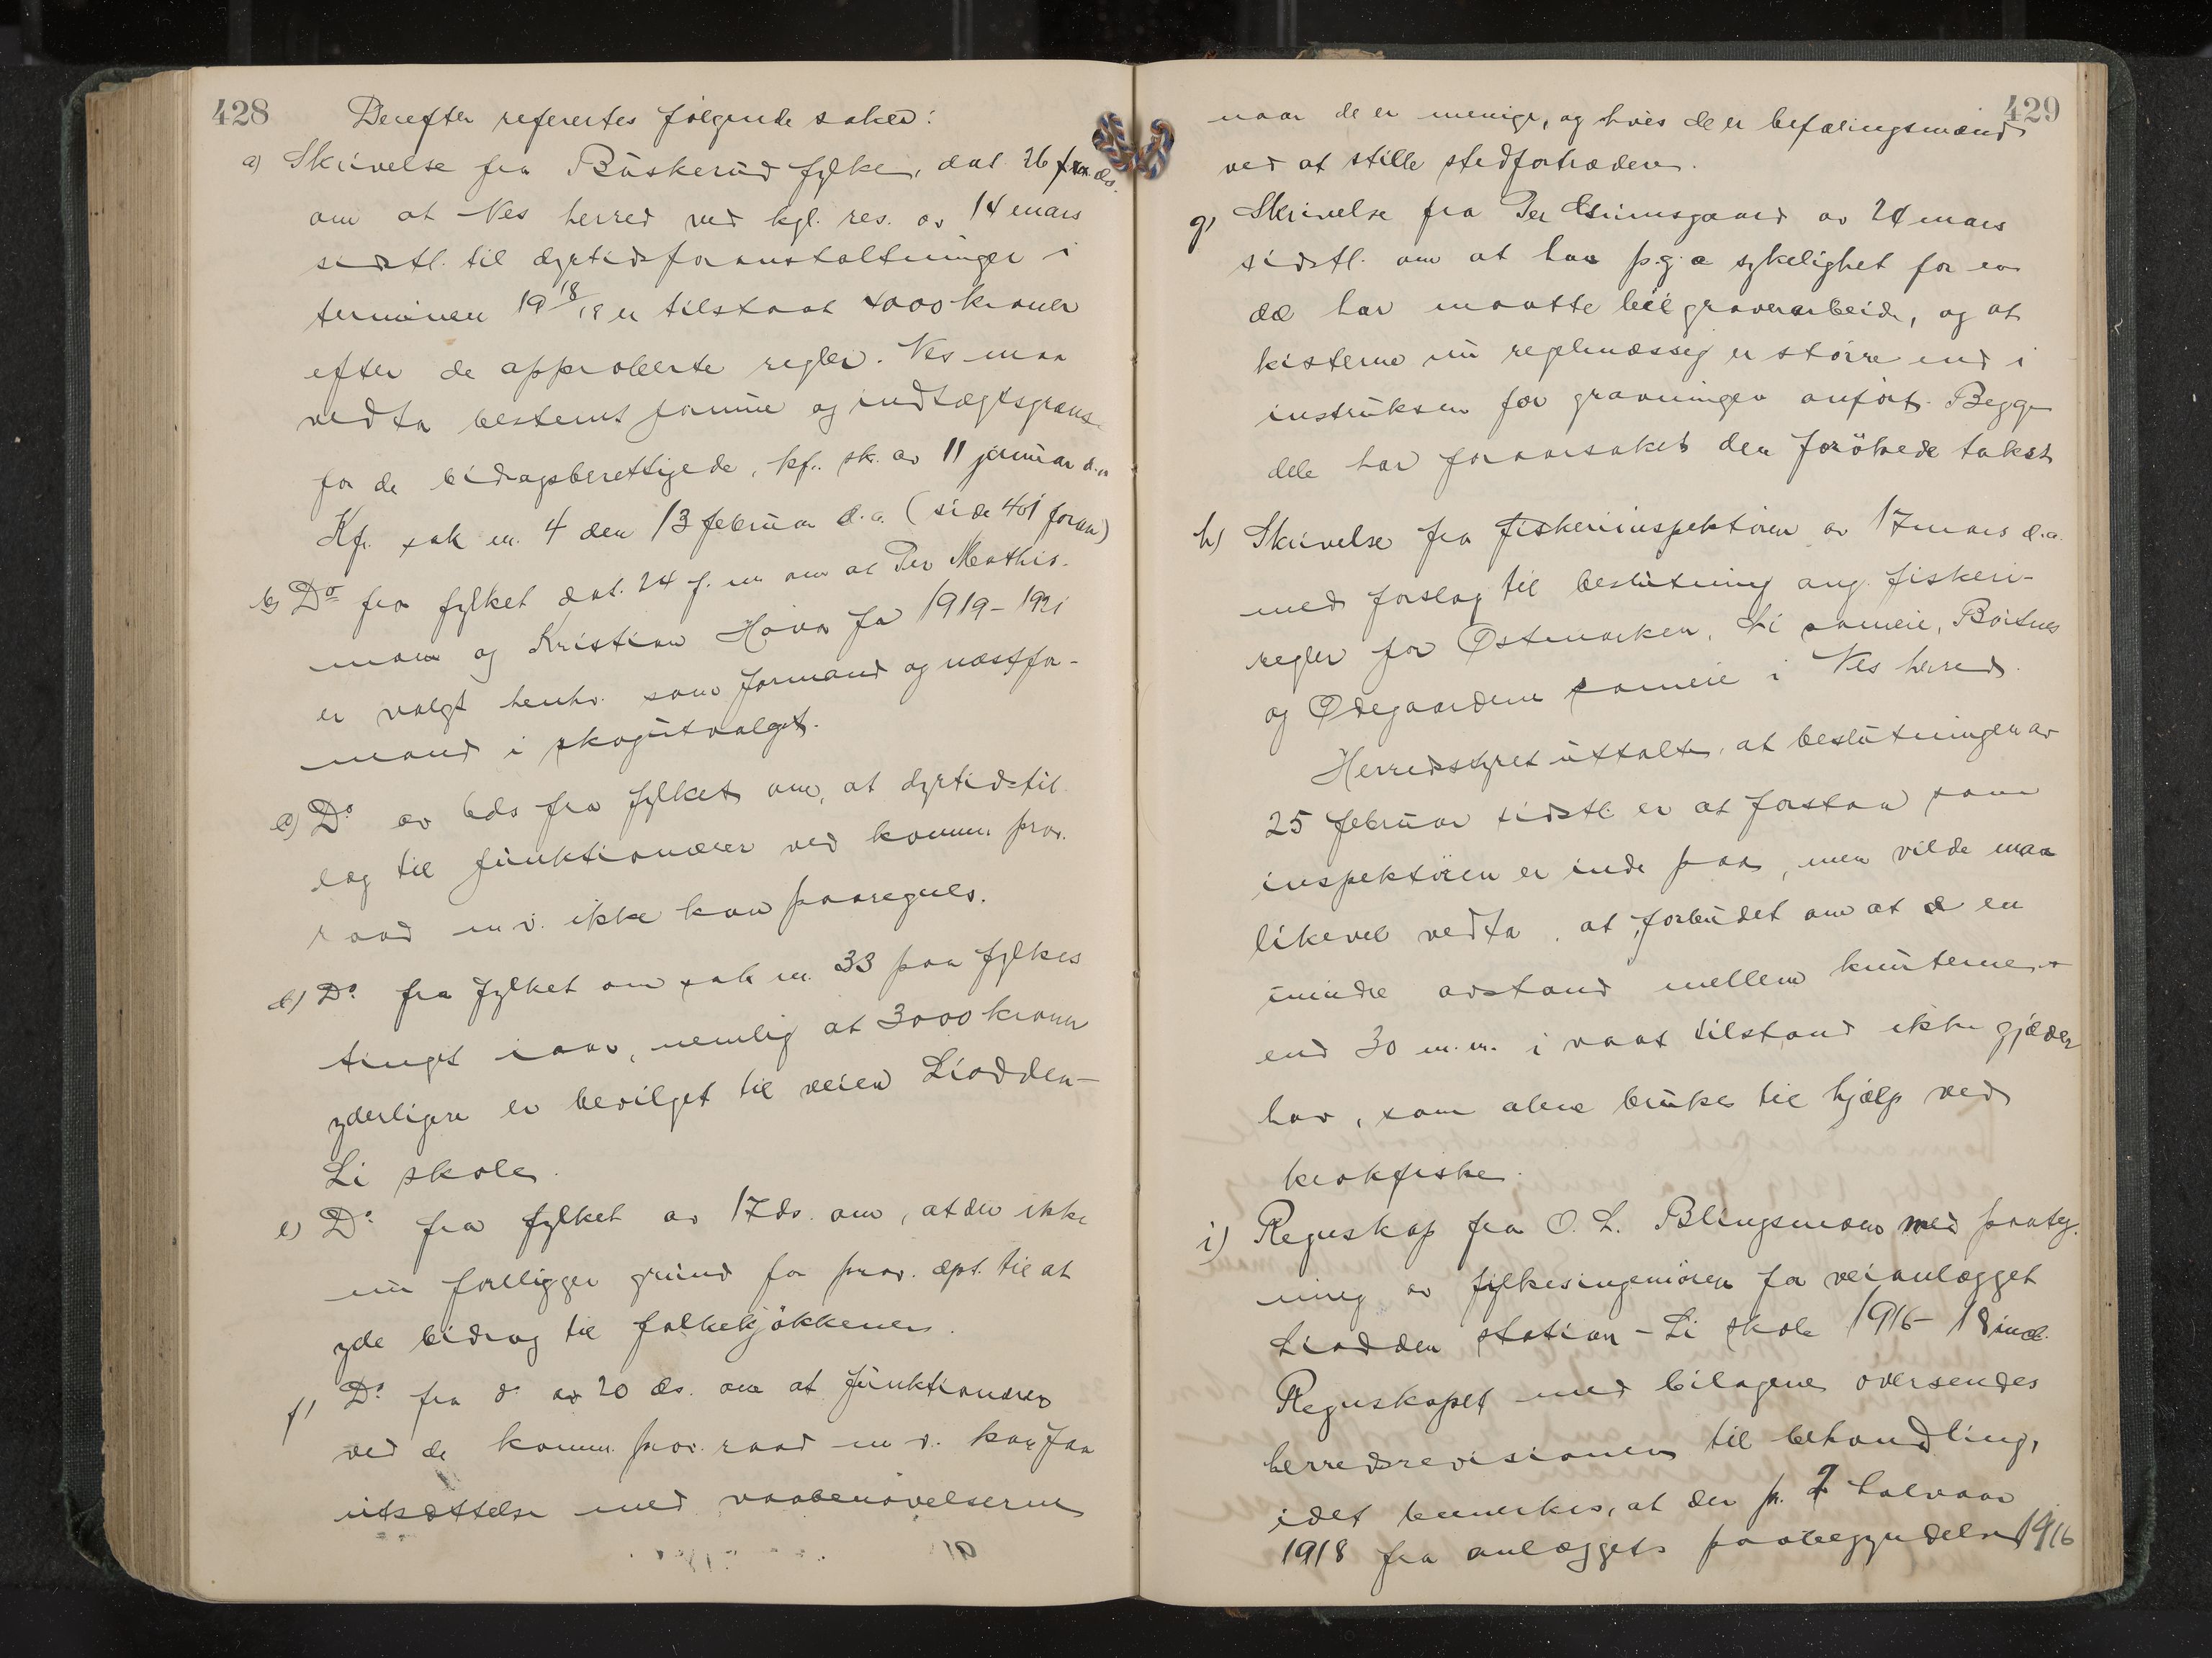 428
Derefter refereertes følgende saker:
a) Skrivelse fra Buskerud fylke, dat. 26 ds.
om at Nes herred ved kgl. res. av 14 mars
sidstl. til dyrtidsforanstaltninger i
terminen 1918/19 er tilstaat 4000 kroner
efter de approberte regler. Nes maa
vedta bestemt formue og indtægtsgrænse
for de bidragsberettigede, kf. sk. av 11 januar d.a.
Kfr. sak nr. 4 den 13 februar d.a. (side 401 foran)
b) Do fra fylket dat. 24 f. m. om at Per Mathis-
moen og Kristian Hova for 1919-1921
er valgt henhv. som formand og næstfor-
mand i skogutvalget.
c) Do av 6ds fra fylket om, at dyrtidstil-
læg til funktionærer ved komm. prov.
raad m.v. ikke kan paaregnes.
d) Do fra fylket om sak nr. 33 paa fylkes
tinget iaar, nemlig at 3000 kroner
yderligere er bevilget til veien Liodden-
Li skole.
e) Do fra fylket av 17ds. om, at der ikke
nu foreligger grund for prov. dpt. til at
yde bidrag til folkekjøkkener.
f) Do fra do av 20 ds. om at funktionærer
ved de komm. prov. raad m.v. kan faa
utsættelse med vaabenøvelserne
429
naar de er menige, og hvis de er befalingsmænd
ved at stille stedfortrædere.
g) Skrivelse fra Per av 24 mars
sidstl. om at han p.g.a sykelighet for en
del har maatte leie graverarbeide, og at
kisterne nu regelmæssig er større end i
instruksen for gravningen anført. Begge
dele har foraarsaket den forøkede takst
h) Skrivelse fra fiskeriinspektøren av 17 mars d.a.
med forslag til beslutning ang. fiskeri-
regler for Østmarken, Li sameie, Børtnes
og Ødegaardene sameie i Nes herred.
Herredsstyret uttalte, at beslutningen av
25 februar sidstl. er at forstaa som
inspektøren er inde paa, men vilde maa
likevel vedta, at forbudet om at en
mindre avstand mellem knuterne
end 30 m.m. i vaat tilstand ikke gjælder
hav, som alene brukes til hjælp ved
krokfiske.
i) Regnskap fra O. L. Blingsmoen med paateg-
ning av fylkesingeniøren for veianlægget
Liodden station - Li skole 1916-18 incl.
Regnskapet med bilagene oversendes
herredsrevisionen til behandling,
idet bemerkes, at der pr. 2 halvaar
1918 fra anlæggets paabegyndelse 1916